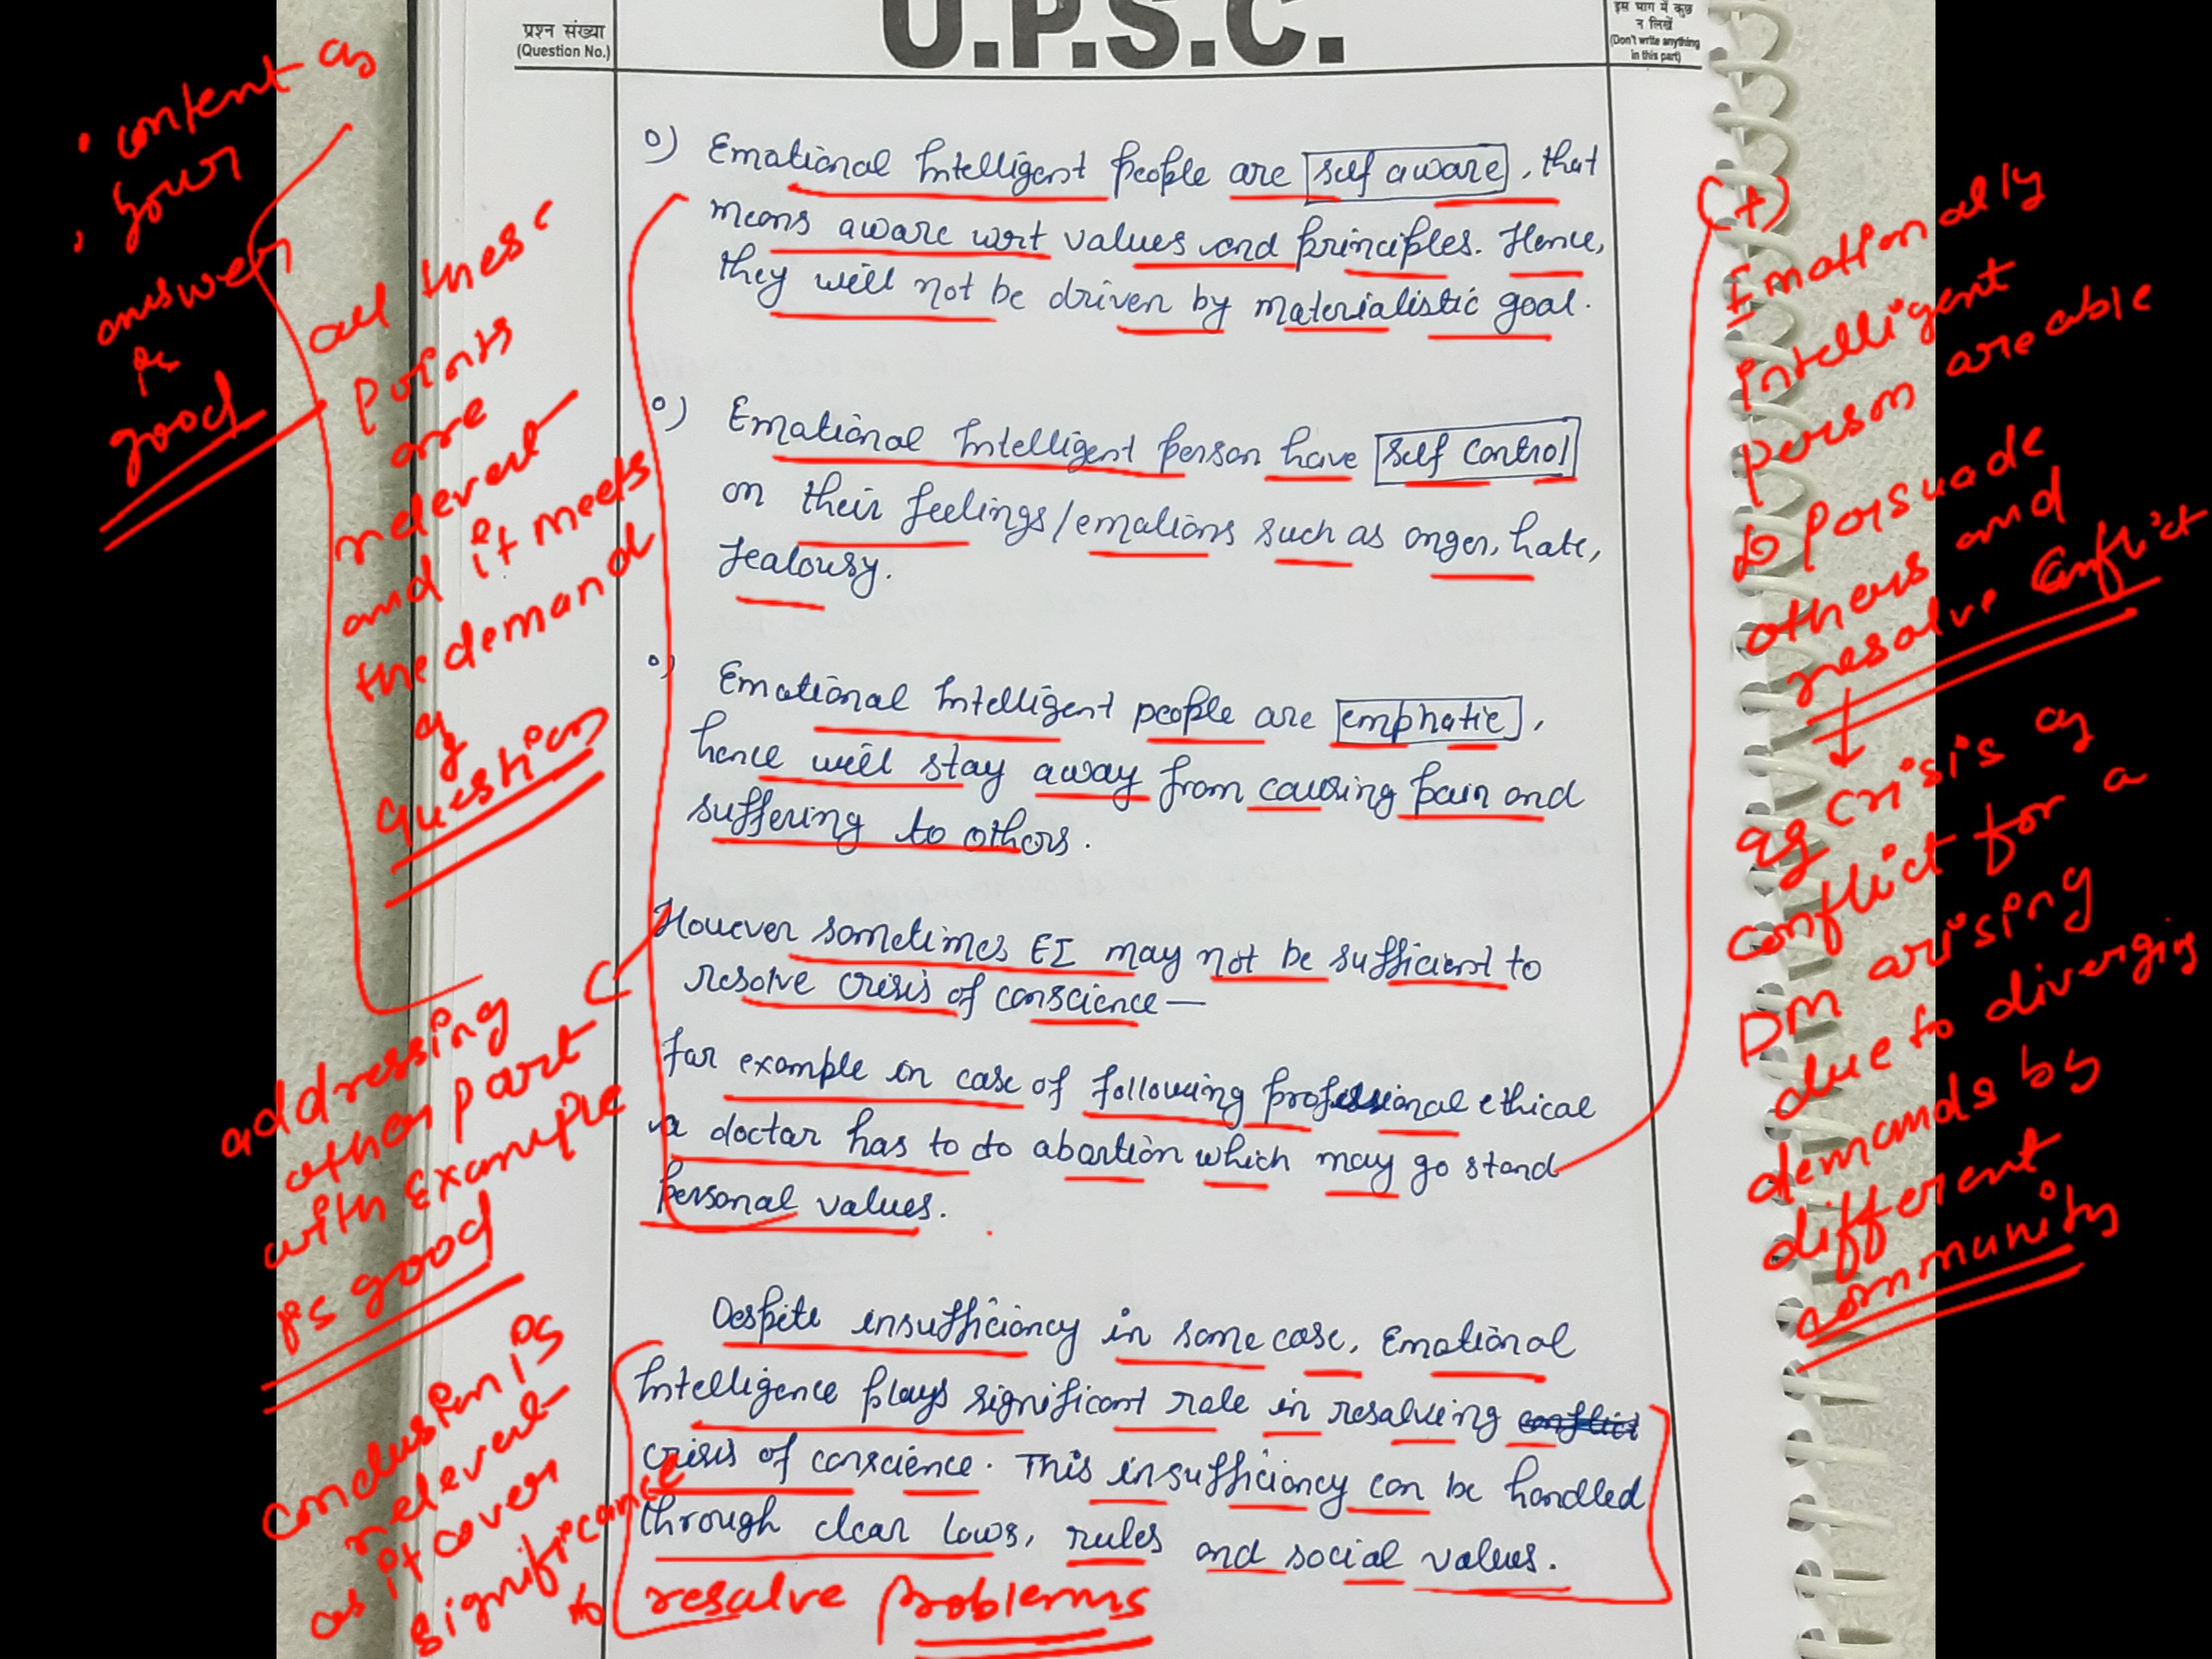 U.P.S.C.
प्रश्न संख्या
(Question No.)
इस भाग में कुछ
न लिखें
(Don't write anything
in this part)
o) Emotional Intelligent people are self aware, that
means aware wrt values and principles. Hence,
they will not be driven by materialistic goal.
o) Emotional Intelligent person have self control
on their feelings/emotions such as anger, hate,
Jealousy.
o) Emotional Intelligent people are emphatic,
hence will stay away from causing pain and
suffering to others.
However sometimes EI may not be sufficient to
resolve crisis of conscience—
for example in case of following professional ethical
a doctor has to do abortion which may go stand
personal values.
Despite insufficiancy in some case, Emotional
Intelligence plays significant role in resolving conflict
crisis of conscience. This insufficiancy can be handled
through clear laws, rules and social values.
content as
your
answer
is
good
all these
points
are
relevant
and it meets
the demand
of
question
addressing
other part
with example
is good
conclusion is
relevant
as it cover
significance
to resolve problems
(+)
Emotionally
intelligent
person are able
to persuade
others and
resolve conflict
eg crisis of
conflict for a
DM arising
due to diverging
demands by
different
community